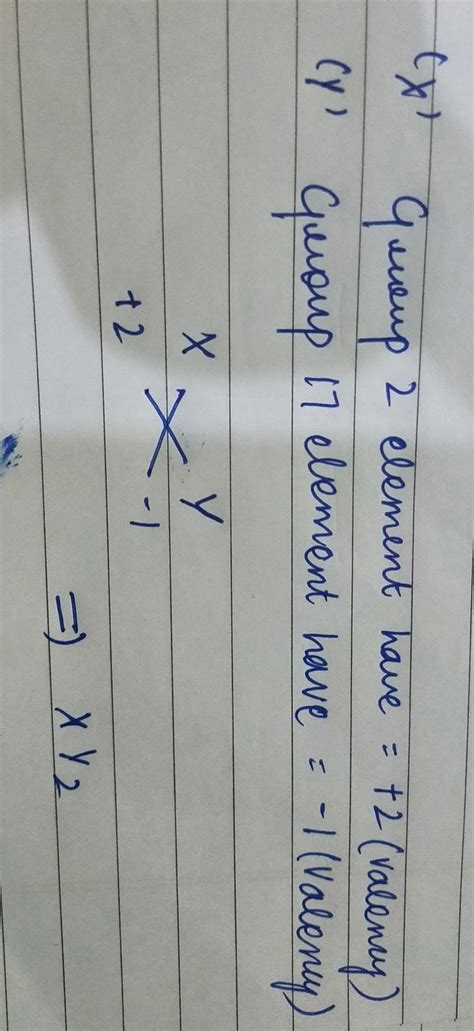 (X) Group 2 element have = +2 (Valency)
(Y) Group 17 element have = -1 (Valency)
X Y
+2 -1
=) XY2